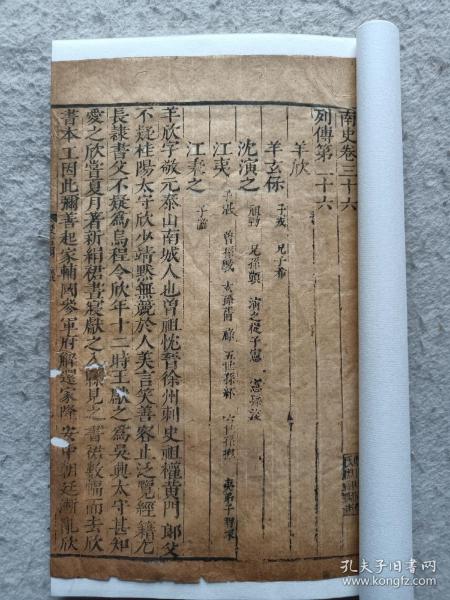 南史卷三十六
列傳第二十六
羊欣
羊玄保 子戎 兄子希
沈演之 祖 兄孫顗 演之從子憲 憲孫浚
江夷 子湛 曾孫斆 玄孫蒨 祿 五世孫紑 六世孫總 夷弟子智深
江秉之 子謐
羊欣字敬元泰山南城人也曾祖忱晉徐州刺史祖權黃門郎父
不疑桂陽太守欣少靖默無競於人美言笑善容止泛覽經籍尤
長隸書父不疑為烏程令欣年十二時王獻之為吳興太守甚知
愛之欣嘗夏月著新絹裙晝寢獻之入縣見之書裙數幅而去欣
書本工因此彌善起家輔國參軍府解還家隆安中朝廷漸亂欣
孔夫子旧书网
book.kongfz.com